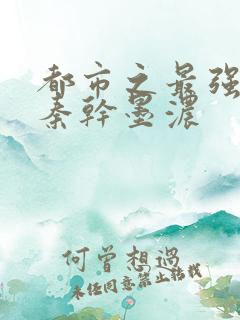 都市之最强
秦幹墨濃
何曾想過
未经同意禁止转载